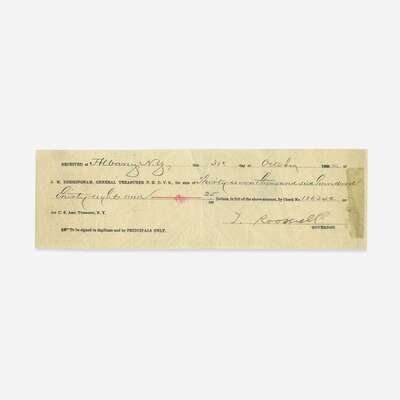 RECEIVED at Albany N.Y. this 30th day of October 189 of
J. M. BIRMINGHAM, GENERAL TREASURER N. H. D. V. S., the sum of Thirty seven thousand six hundred
thirty eight and 25/100 Dollars, in full of the above account, by Check No. 106242 on
the U. S. Asst. Treasurer, N. Y.
T. Roosevelt
GOVERNOR.
To be signed in duplicate and by PRINCIPALS ONLY.